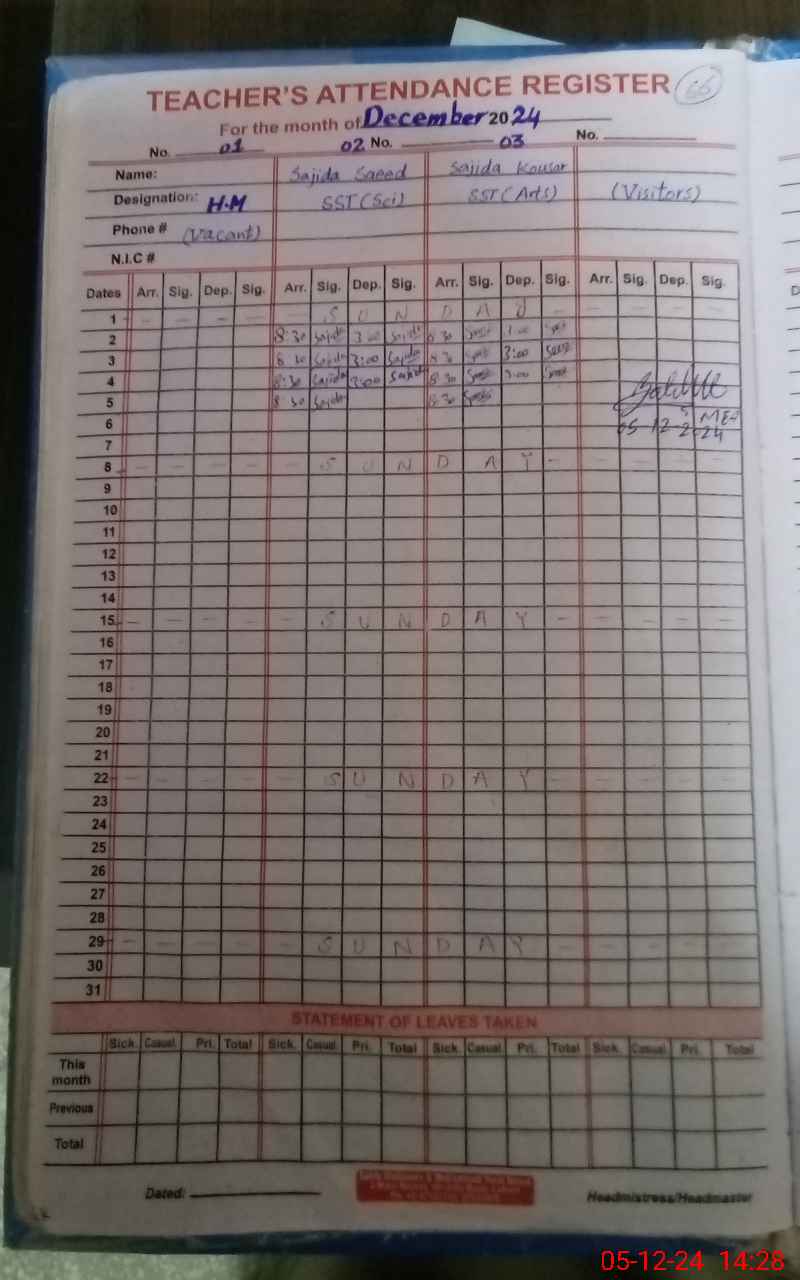 TEACHER'S ATTENDANCE REGISTER 66
For the month of December 2024
No. 01 02 No. 03 No.
Name: Sajida Saeed Sajida Kousar
Designation: H.M SST (Sci) SST (Arts) (Visitors)
Phone # (Vacant)
N.I.C #
Dates Arr. Sig. Dep. Sig. Arr. Sig. Dep. Sig. Arr. Sig. Dep. Sig. Arr. Sig. Dep. Sig.
1 - - - - - S U N D A Y -
2 8:30 Sajida 3:00 Sajida 8:30 3:00
3 8:30 Sajida 3:00 Sajida 8:30 3:00
4 8:30 Sajida 3:00 Sajida 8:30 3:00
5 8:30 Sajida 8:30
6
05-12-2024
7
8 - - - - - S U N D A Y -
9
10
11
12
13
14
15 - - - - - S U N D A Y - - - - -
16
17
18
19
20
21
22 - - - - - S U N D A Y - - - - -
23
24
25
26
27
28
29 - - - - - S U N D A Y - - - - -
30
31
STATEMENT OF LEAVES TAKEN
Sick. Casual. Pri. Total Sick. Casual. Pri. Total Sick. Casual. Pri. Total Sick. Casual. Pri. Total
This month
Previous
Total
Dated: Headmistress/Headmaster
05-12-24 14:28